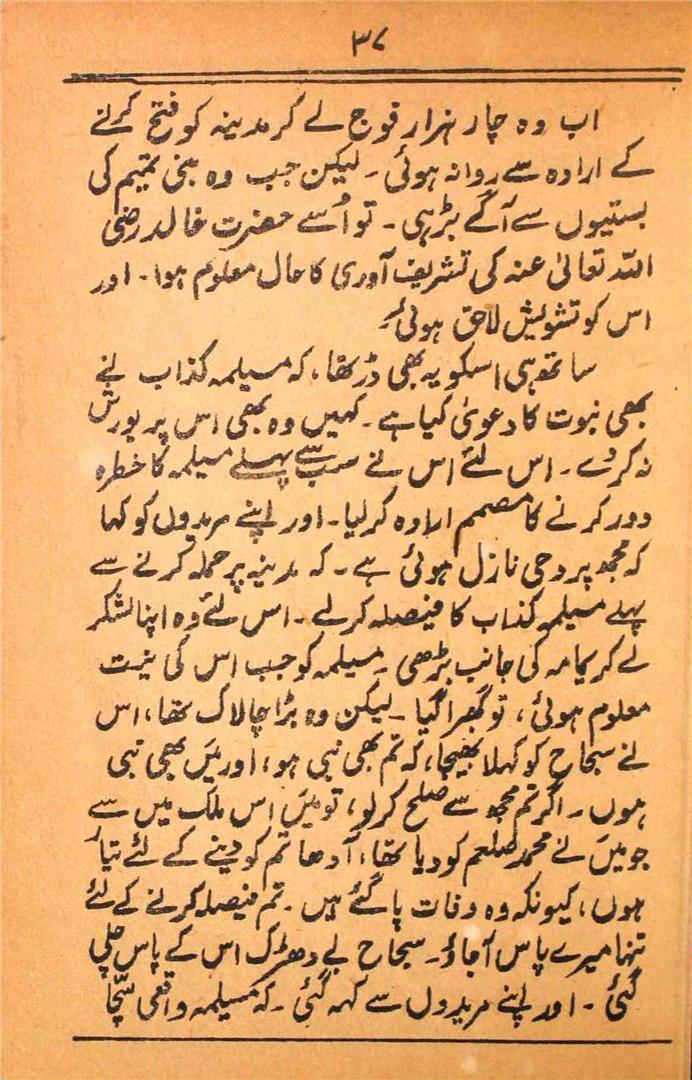 ۳۷
اب وہ چار ہزار فوج لے کر مدینہ کو فتح کرنے
کے ارادہ سے روانہ ہوئی ۔ لیکن جب وہ بنی تمیم کی
بستیوں سے آگے بڑہی ۔ تو اُسے حضرت خالد رضی
اللہ تعالیٰ عنہ کی تشریف آوری کا حال معلوم ہوا ۔ اور
اس کو تشویش لاحق ہوئی
ساتھ ہی اسکو یہ بھی ڈر تھا ، کہ مسیلمہ کذاب نے
بھی نبوت کا دعویٰ کیا ہے ۔ کہیں وہ بھی اس پر یورش
نہ کر دے ۔ اس لئے اس نے سب سے پہلے مسیلمہ کا خطرہ
دور کرنے کا مصمم ارادہ کر لیا ۔ اور اپنے مریدوں کو کہا
کہ مجھ پر وحی نازل ہوئی ہے ۔ کہ مدینہ پر حملہ کرنے سے
پہلے مسیلمہ کذاب کا فیصلہ کر لے ۔ اس لئے وہ اپنا لشکر
لے کر یمامہ کی جانب بڑھی ۔ مسیلمہ کو جب اس کی نیت
معلوم ہوئی ، تو گھبرا گیا ۔ لیکن وہ بڑا چالاک تھا ، اس
نے سجاح کو کہلا بھیجا ، کہ تم بھی نبی ہو ، اور میں بھی نبی
ہوں ۔ اگر تم مجھ سے صلح کر لو ، تو میں اس ملک میں سے
جو میں نے محمد صلعم کو دیا تھا ، آدھا تم کو دینے کے لئے تیار
ہوں ، کیونکہ وہ وفات پا گئے ہیں ۔ تم فیصلہ کرنے کے لئے
تنہا میرے پاس آجاؤ ۔ سجاح بے دھڑک اس کے پاس چلی
گئی ۔ اور اپنے مریدوں سے کہہ گئی ۔ کہ مسیلمہ واقعی سچّا